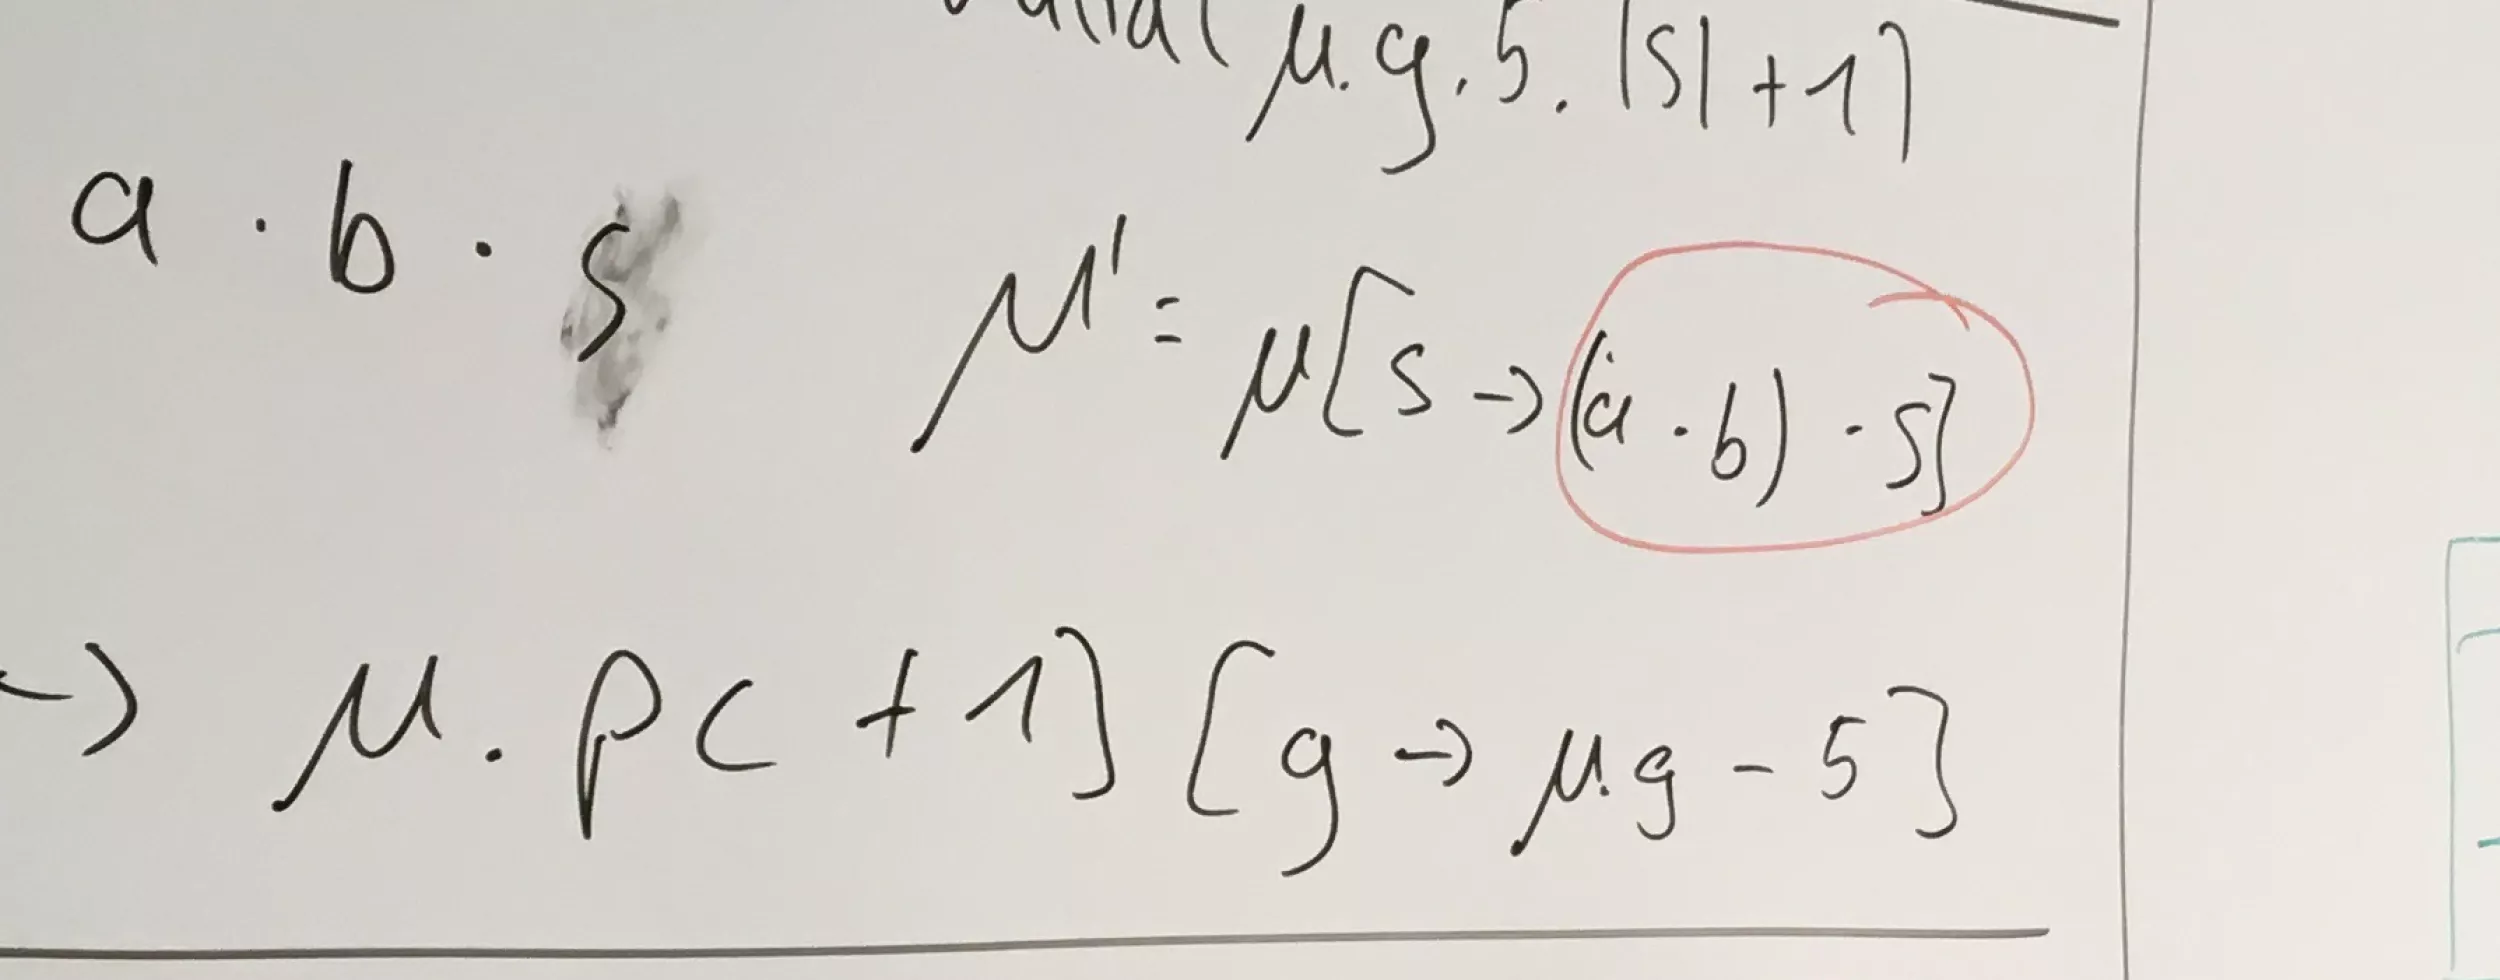 valid( μ.g.5.|s|+1)
a · b · s μ' = μ[s → (a · b) · s]
→ μ.pc + 1] [g → μ.g - 5]